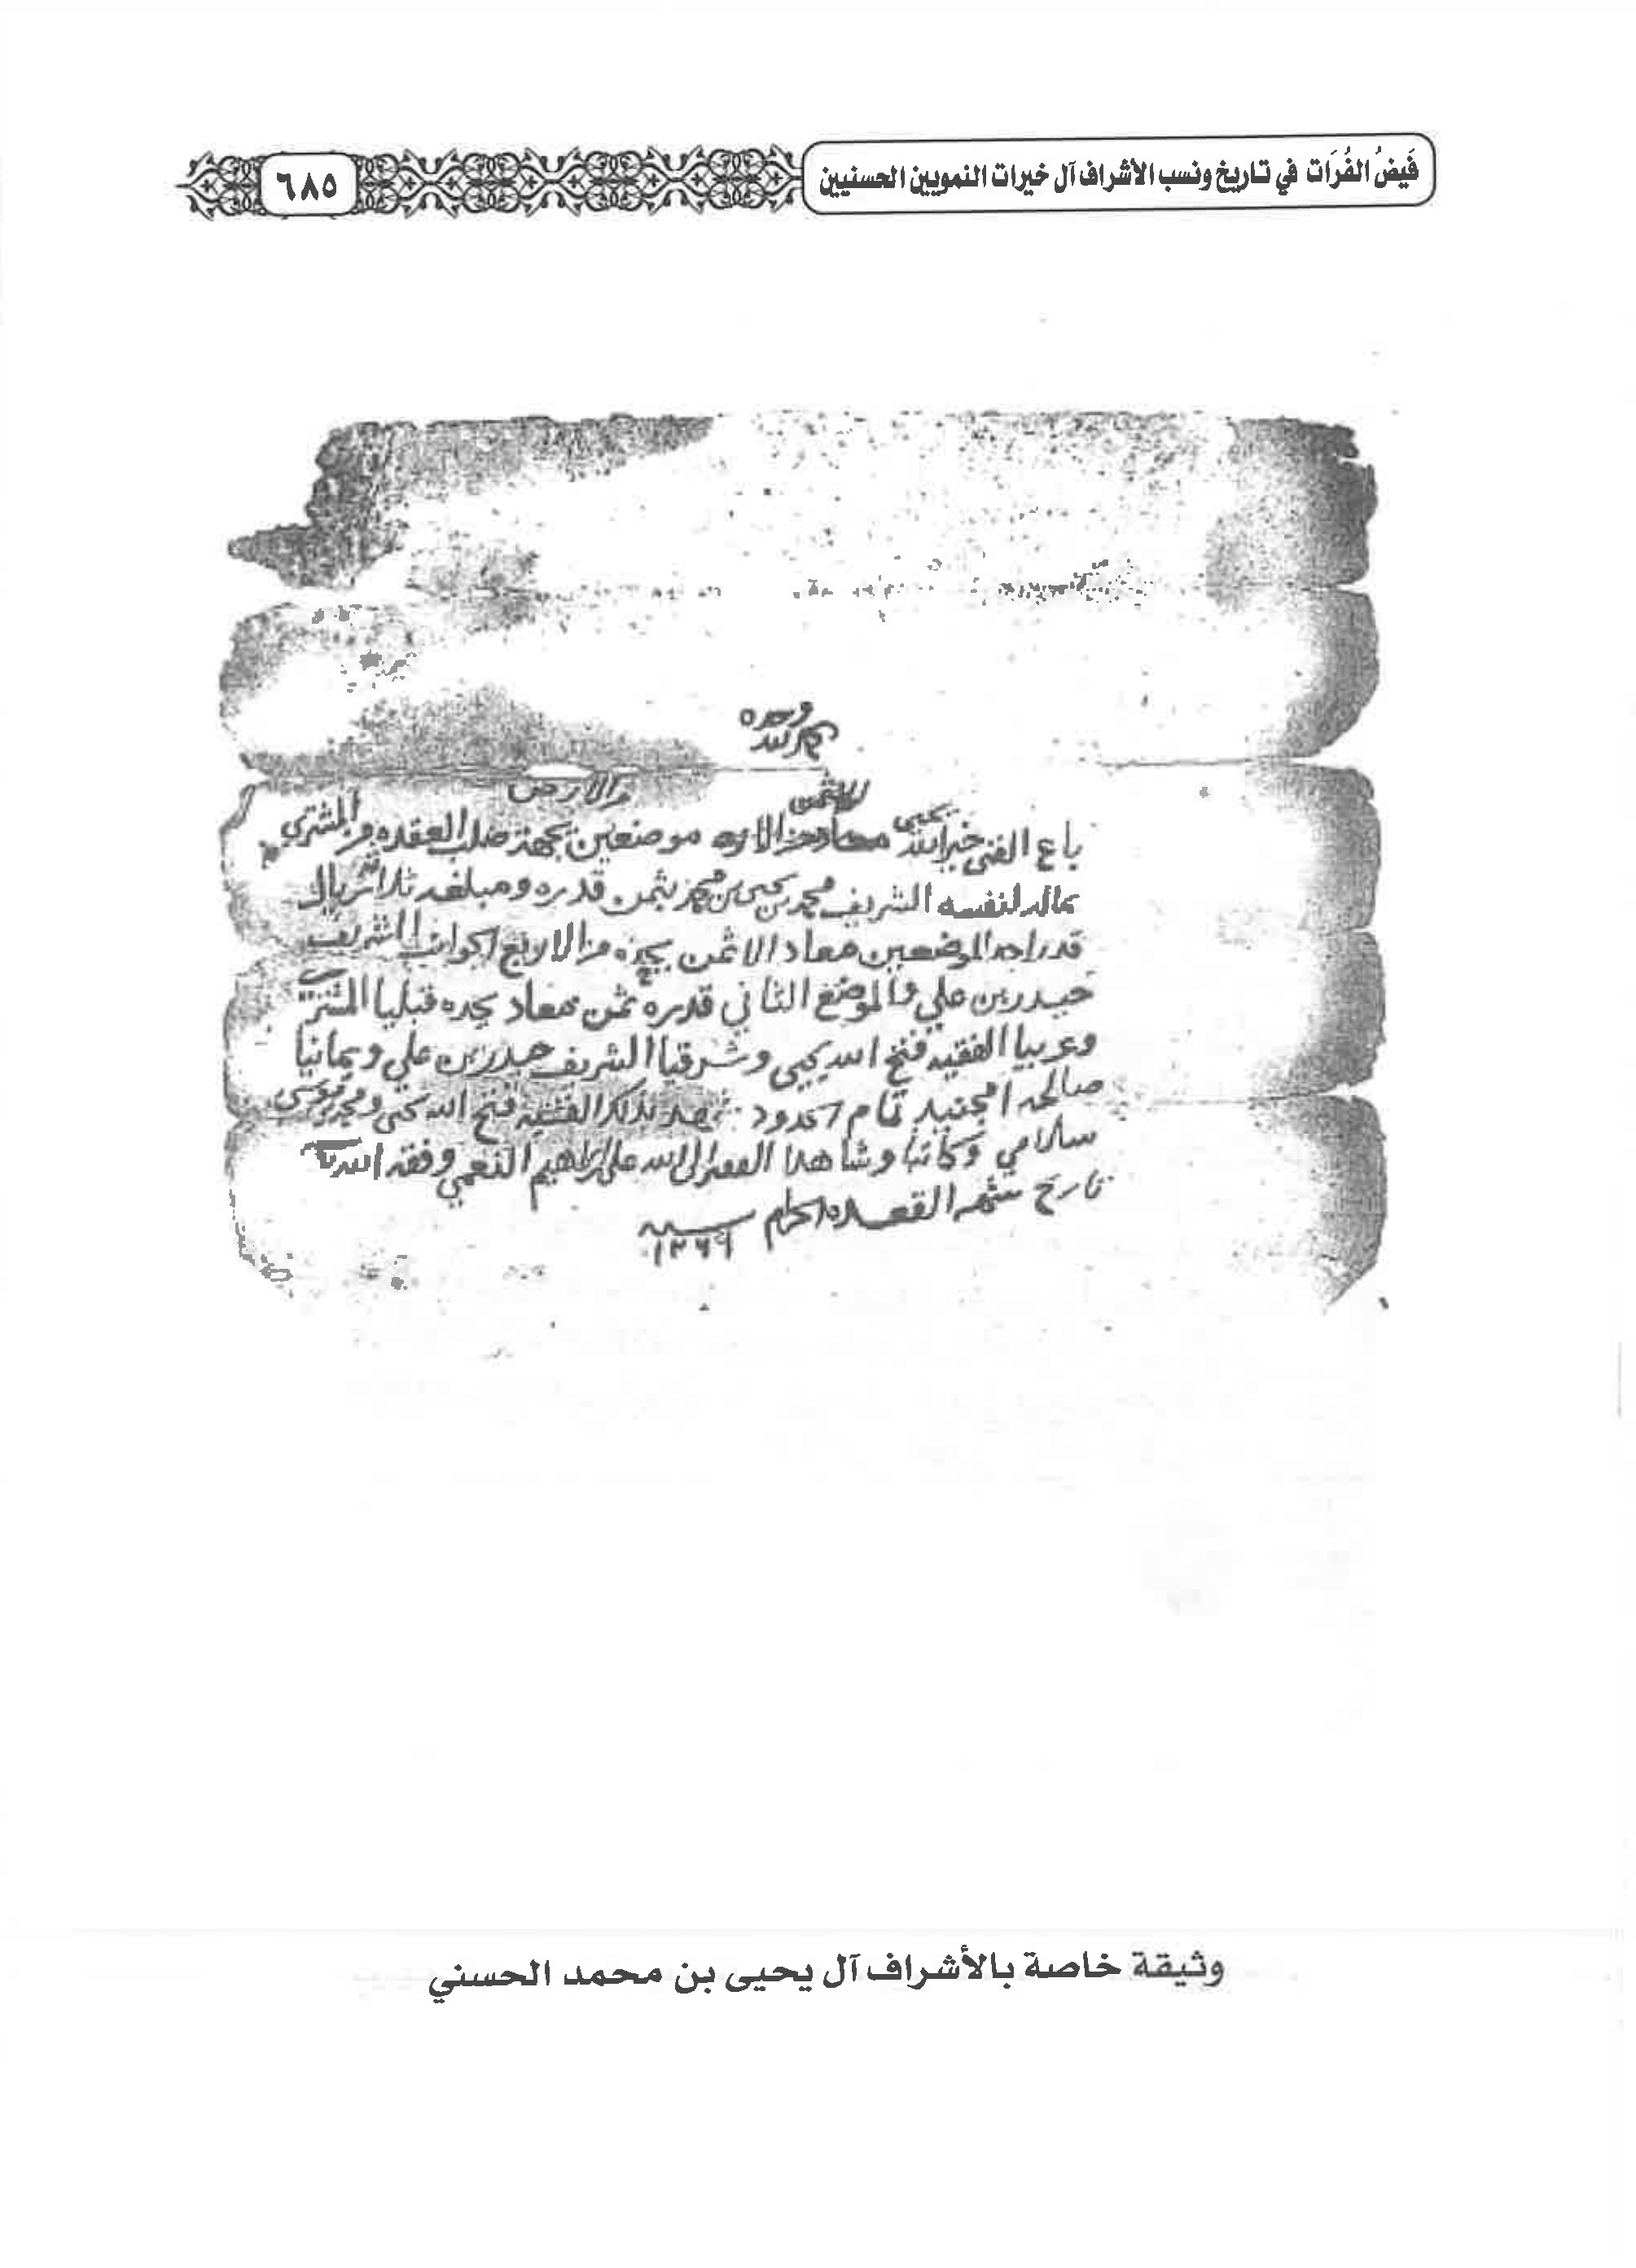 فَيضُ الفُرَات في تاريخ ونسب الأشراف آل خيرات النمويين الحسنيين
٦٨٥
الحمد لله
وحده
من الارض
باع الفقي خير الله يحيى موضعين بجهة صلب العقده من المشتري
بماله لنفسه الشريف محمد بن يحيى بن محمد بثمن قدره ومبلغه ثلاثة ريال
قدر احد الموضعين معاد الا ثمن من الاربع الجوانب الشريف
حيدر بن علي والموضع الثاني قدره ثمن معاد يحده قبليا المشتري
وغربيا الفقيه فتح الله يحيى وشرقيا الشريف حيدر بن علي ويمانيا
صالحه الجنيد تمام الحدود شهد بذلك الفقيه فتح الله يحيى ومحمد موسى
سلامي وكاتبا وشاهدا الفقير الى الله علي ابراهيم النعمي وفقه الله
تاريخ شهر القعده الحرام سنة
١٢٦٩
وثيقة خاصة بالأشراف آل يحيى بن محمد الحسني